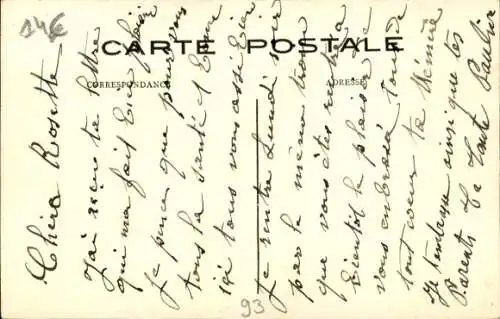 14€
CARTE POSTALE
CORRESPONDANCE
ADRESSE
Chère Rosette
J'ai reçu ta lettre
qui m'a fait bien plaisir
Je pense que pour vous
tous la santé est bonne
ici tous vous assi bien
Je rentre Lundi soir
par la même
que vous êtes
Bientôt le plaisir de
vous embrassé tous de
tout coeur ta Mémée
Je t'embrasse ainsi que tes
Parents Ta Tante Pauline
93